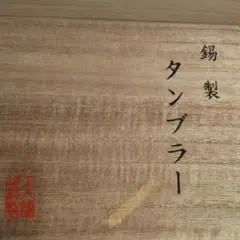 錫製
タンブラー